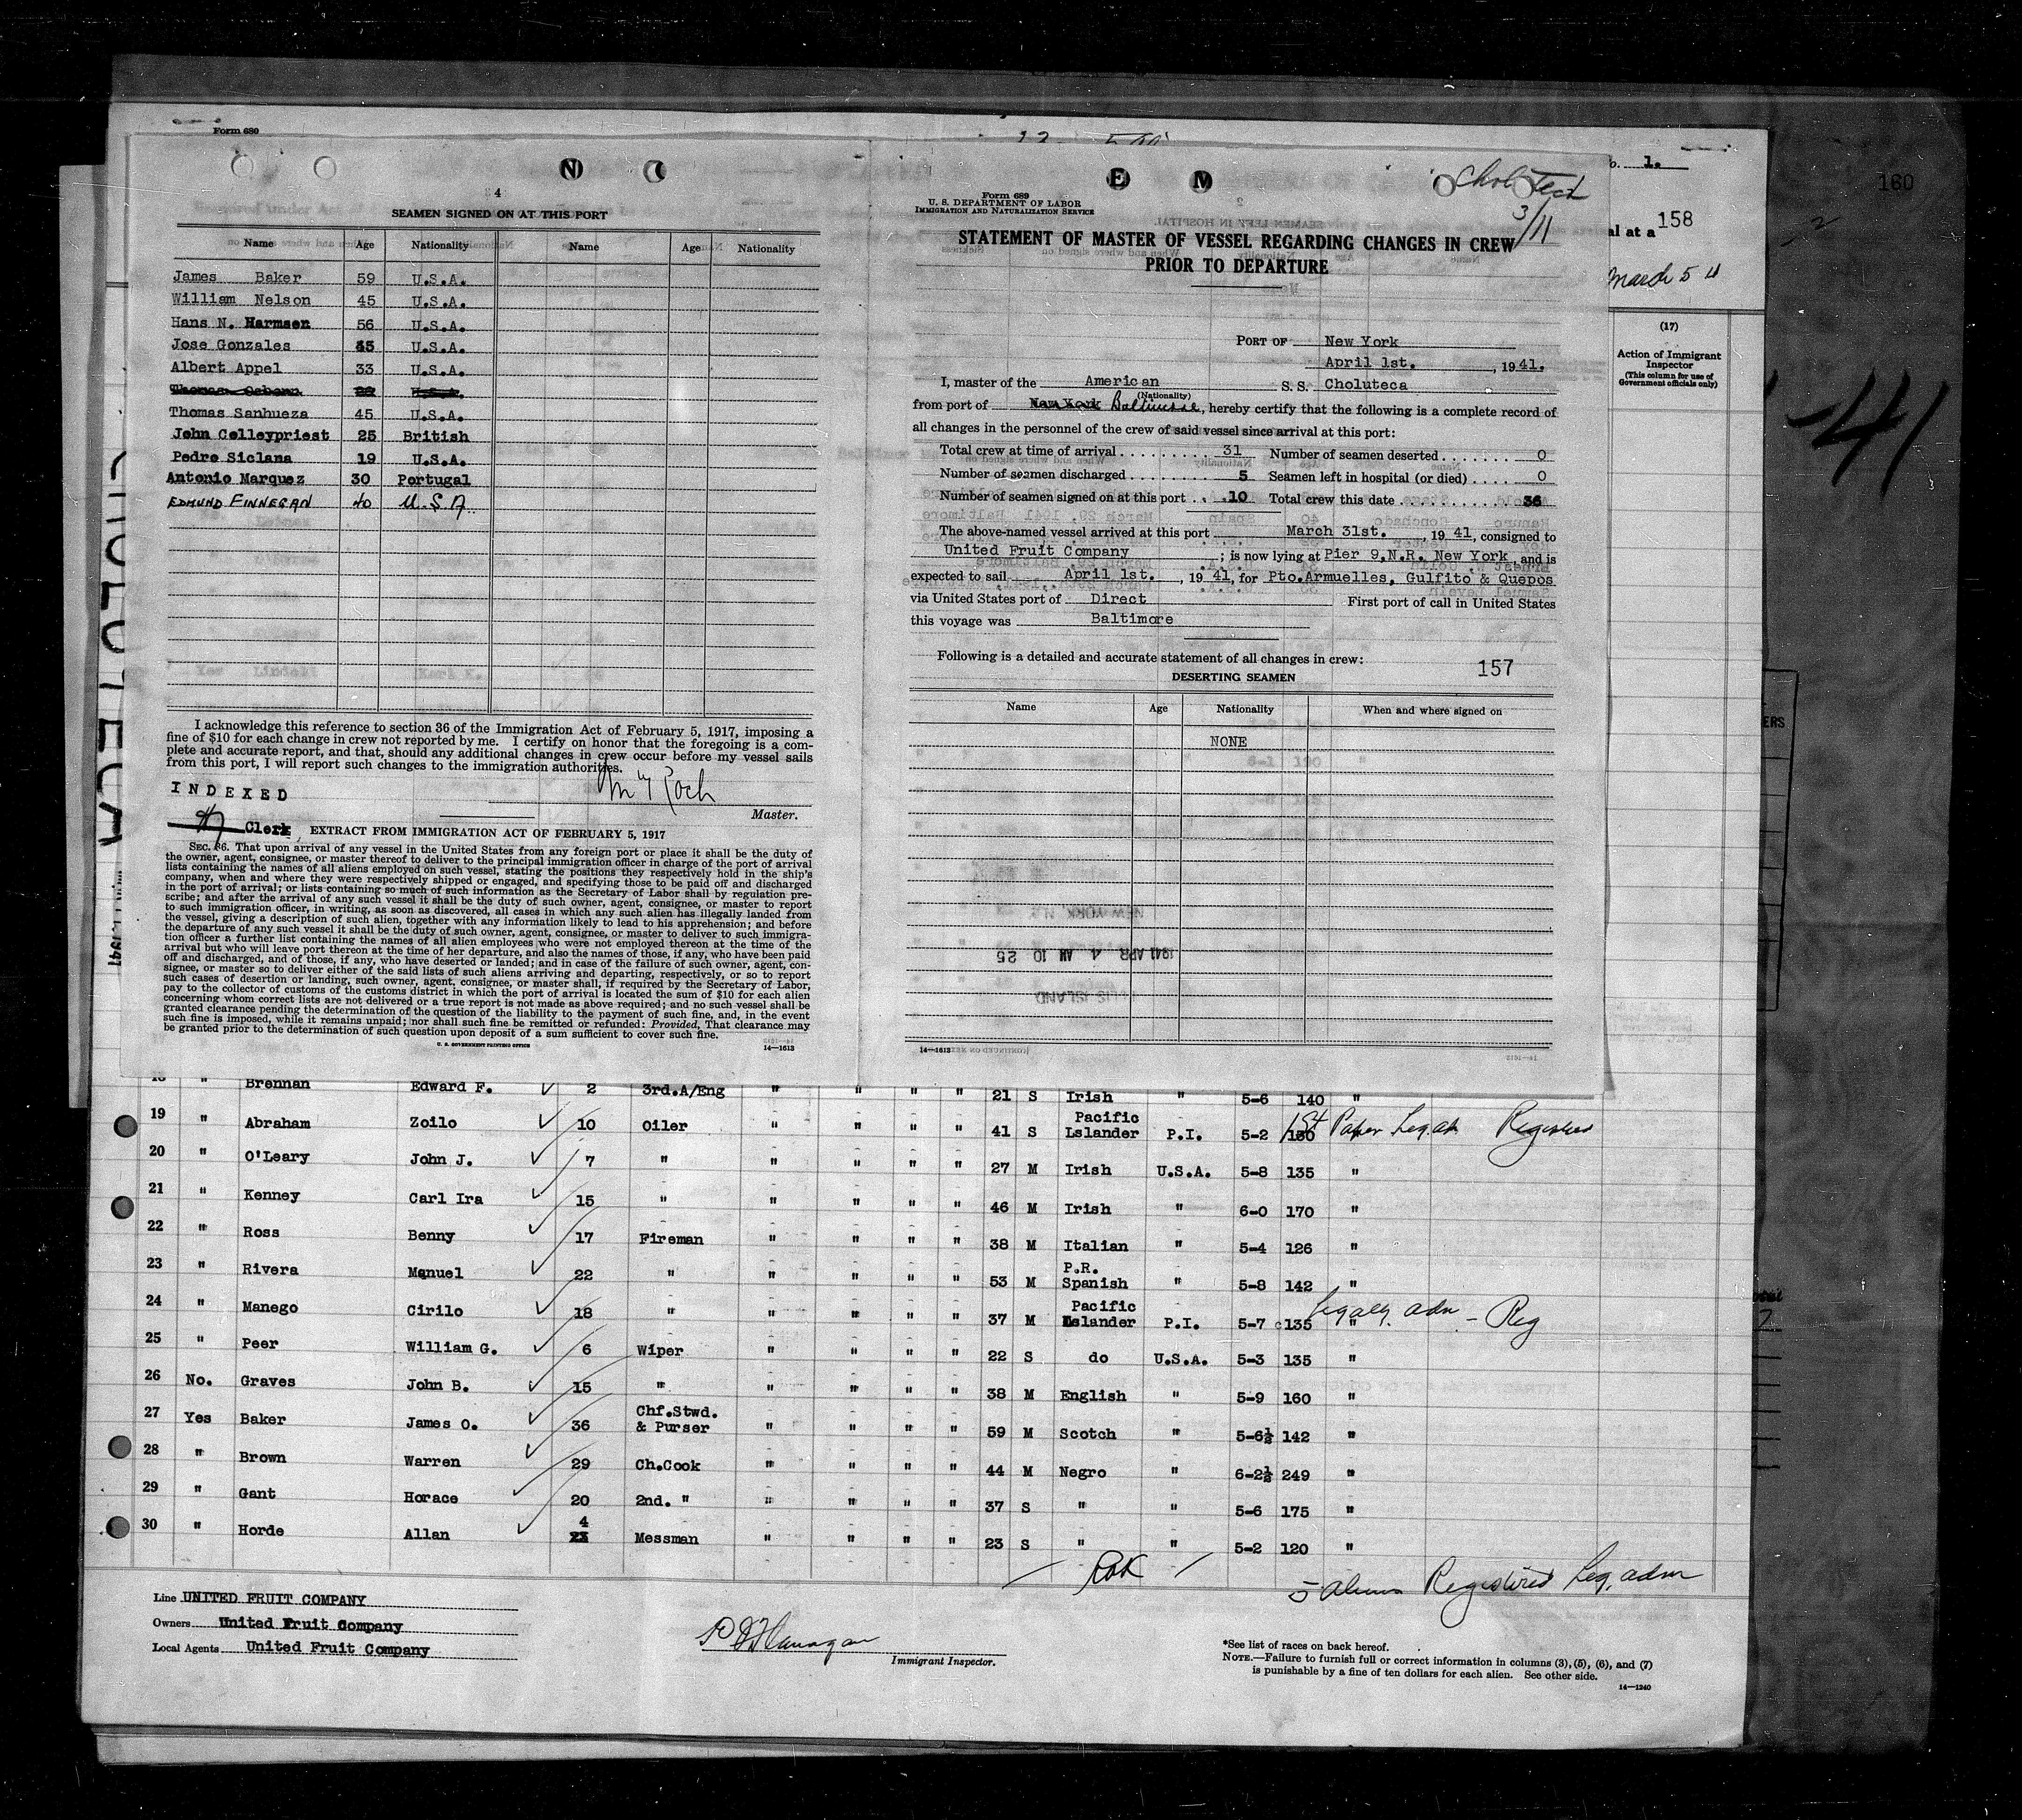 Form 680
N C
4
SEAMEN SIGNED ON AT THIS PORT
Name Age Nationality Name Age Nationality
James Baker 59 U.S.A.
William Nelson 45 U.S.A.
Hans N. Harmsen 56 U.S.A.
Jose Gonzales U.S.A.
Albert Appel 33 U.S.A.
Thomas Osborn 22 U.S.A.
Thomas Sanhueza 45 U.S.A.
John Colleypriest 25 British
Pedro Siclana 19 U.S.A.
Antonio Marquez 30 Portugal
EDMUND FINNEGAN 40 U.S.A.
I acknowledge this reference to section 36 of the Immigration Act of February 5, 1917, imposing a
fine of $10 for each change in crew not reported by me. I certify on honor that the foregoing is a com-
plete and accurate report, and that, should any additional changes in crew occur before my vessel sails
from this port, I will report such changes to the immigration authorities.
INDEXED
Master.
Clerk
EXTRACT FROM IMMIGRATION ACT OF FEBRUARY 5, 1917
SEC. 36. That upon arrival of any vessel in the United States from any foreign port or place it shall be the duty of
the owner, agent, consignee, or master thereof to deliver to the principal immigration officer in charge of the port of arrival
lists containing the names of all aliens employed on such vessel, stating the positions they respectively hold in the ship's
company, when and where they were respectively shipped or engaged, and specifying those to be paid off and discharged
in the port of arrival; or lists containing so much of such information as the Secretary of Labor shall by regulation pre-
scribe; and after the arrival of any such vessel it shall be the duty of such owner, agent, consignee, or master to report
to such immigration officer, in writing, as soon as discovered, all cases in which any such alien has illegally landed from
the vessel, giving a description of such alien, together with any information likely to lead to his apprehension; and before
the departure of any such vessel it shall be the duty of such owner, agent, consignee, or master to deliver to such immigra-
tion officer a further list containing the names of all alien employees who were not employed thereon at the time of the
arrival but who will leave port thereon at the time of her departure, and also the names of those, if any, who have been paid
off and discharged, and of those, if any, who have deserted or landed; and in case of the failure of such owner, agent, con-
signee, or master so to deliver either of the said lists of such aliens arriving and departing, respectively, or so to report
such cases of desertion or landing, such owner, agent, consignee, or master shall, if required by the Secretary of Labor,
pay to the collector of customs of the customs district in which the port of arrival is located the sum of $10 for each alien
concerning whom correct lists are not delivered or a true report is not made as above required; and no such vessel shall be
granted clearance pending the determination of the question of the liability to the payment of such fine, and, in the event
such fine is imposed, while it remains unpaid; nor shall such fine be remitted or refunded: Provided, That clearance may
be granted prior to the determination of such question upon deposit of a sum sufficient to cover such fine.
U. S. GOVERNMENT PRINTING OFFICE
14—1613
E M
Form 689
U. S. DEPARTMENT OF LABOR
IMMIGRATION AND NATURALIZATION SERVICE
3/11
STATEMENT OF MASTER OF VESSEL REGARDING CHANGES IN CREW
PRIOR TO DEPARTURE
PORT OF New York
April 1st. , 1941.
I, master of the American S. S. Choluteca
(Nationality)
from port of New York Baltimore, hereby certify that the following is a complete record of
all changes in the personnel of the crew of said vessel since arrival at this port:
Total crew at time of arrival 31 Number of seamen deserted 0
Number of seamen discharged 5 Seamen left in hospital (or died) 0
Number of seamen signed on at this port 10 Total crew this date 36
The above-named vessel arrived at this port March 31st. , 1941, consigned to
United Fruit Company ; is now lying at Pier 9,N.R. New York, and is
expected to sail April 1st. , 1941, for Pto.Armuelles, Gulfito & Quepos
via United States port of Direct First port of call in United States
this voyage was Baltimore
Following is a detailed and accurate statement of all changes in crew: 157
DESERTING SEAMEN
Name Age Nationality When and where signed on
NONE
1941 APR 4 AM 10 25
14—1613
1.
160
al at a 158
March 5
(17)
Action of Immigrant
Inspector
(This column for use of
Government officials only)
-41
ERS
18 " Brennan Edward F. 2 3rd.A/Eng " " " " 21 S Irish " 5-6 140 "
19 " Abraham Zoilo 10 Oiler " " " " 41 S Pacific Lslander P.I. 5-2 1st Paper Registered
20 " O'Leary John J. 7 " " " " " 27 M Irish U.S.A. 5-8 135 "
21 " Kenney Carl Ira 15 " " " " " 46 M Irish " 6-0 170 "
22 " Ross Benny 17 Fireman " " " " 38 M Italian " 5-4 126 "
23 " Rivera Manuel 22 " " " " " 53 M P.R. Spanish " 5-8 142 "
24 " Manego Cirilo 18 " " " " " 37 M Pacific Islander P.I. 5-7 135 " Legally adm - Reg
25 " Peer William G. 6 Wiper " " " " 22 S do U.S.A. 5-3 135 "
26 No. Graves John B. 15 " " " " " 38 M English " 5-9 160 "
27 Yes Baker James O. 36 Chf.Stwd. & Purser " " " " 59 M Scotch " 5-6½ 142 "
28 " Brown Warren 29 Ch.Cook " " " " 44 M Negro " 6-2½ 249 "
29 " Gant Horace 20 2nd. " " " " " 37 S " " 5-6 175 "
30 " Horde Allan 4 Messman " " " " 23 S " " 5-2 120 "
5 aliens Registered Leg. adm
Line UNITED FRUIT COMPANY
Owners United Fruit Company
Local Agents United Fruit Company
Immigrant Inspector.
*See list of races on back hereof.
NOTE.—Failure to furnish full or correct information in columns (3), (5), (6), and (7)
is punishable by a fine of ten dollars for each alien. See other side.
14—1240